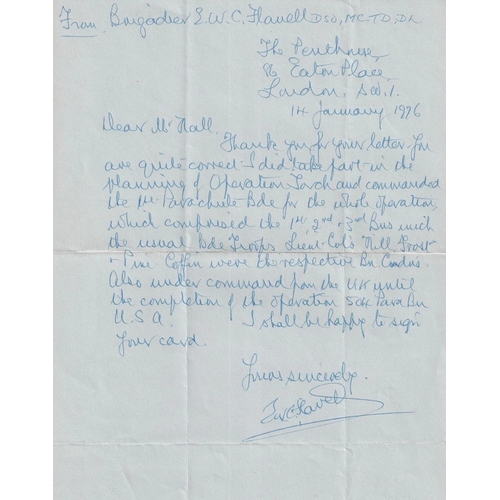 From Brigadier E.W.C. Flavell DSO, MC, TD, DL
The Penthouse,
86 Eaton Place,
London, SW.1.
14 January 1976
Dear Mr Hall.
Thank you for your letter. You
are quite correct. I did take part in the
planning of Operation Torch and commanded
the 1st Parachute Bde for the whole operation,
which comprised the 1st, 2nd & 3rd Bns with
the usual Bde Troops. Lieut-Cols Hill, Frost
& Pine Coffin were the respective Bn Comdrs.
Also under command from the UK until
the completion of the operation 504 Para Bn
U.S.A. I shall be happy to sign
your card.
Yours sincerely.
EWCFlavell